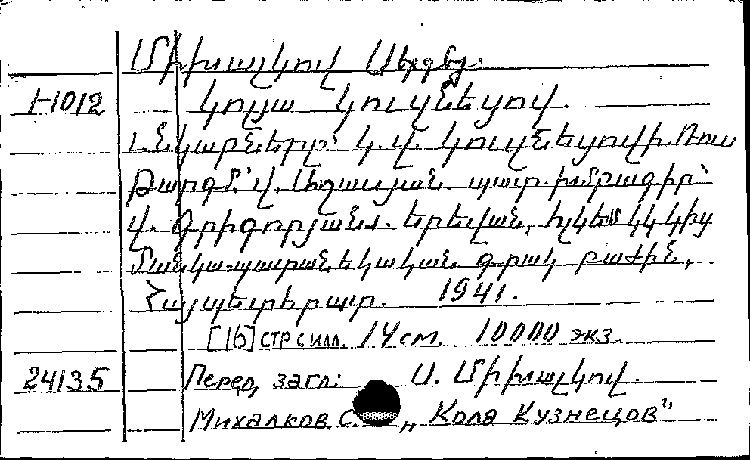 Միխալկով Սերգեյ.
1-1012 Կոլյա Կուզնեցով.
Նկարները՝ Կ. Վ. Կուզնեցովի. Ռուս
Թարգմ՝ Վ. Աղասյան. պատ. խմբագիր՝
Վ. Գրիգորյան. Երևան, ՀԼԿԵՄ ԿԿ կից
մանկապատանեկական գրակ բաժին,
Հայպետհրատ. 1941.
[16] стр с илл. 14 см. 10000 экз.
24135 Перед. загл: Ս. Միխալկով.
Михалков С. „Коля Кузнецов"